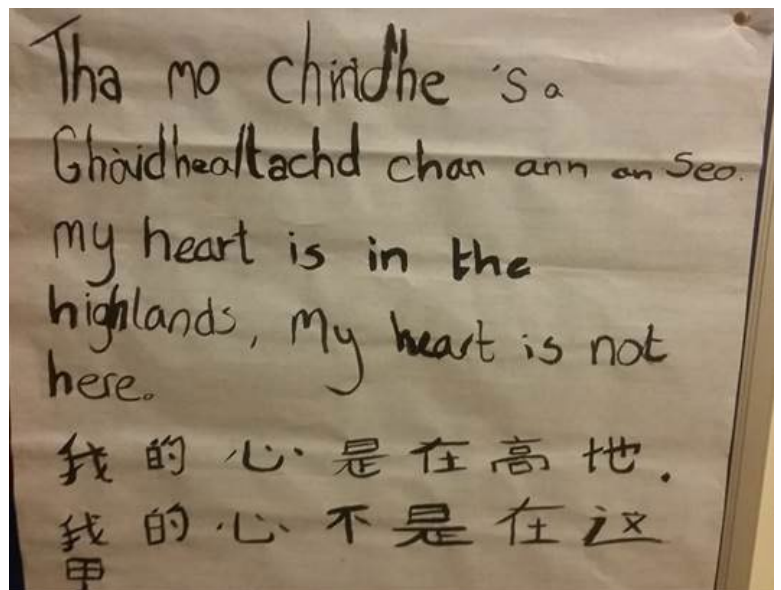 Tha mo Chridhe 's a
Ghàidhealtachd chan ann an Seo.
my heart is in the
highlands, My heart is not
here.
我的心是在高地.
我的心不是在这
里